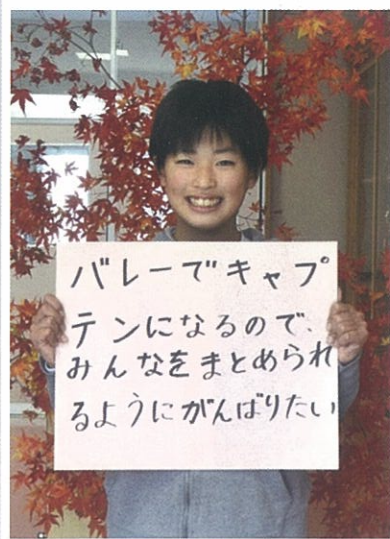 バレーでキャプ
テンになるので、
みんなをまとめられ
るようにがんばりたい